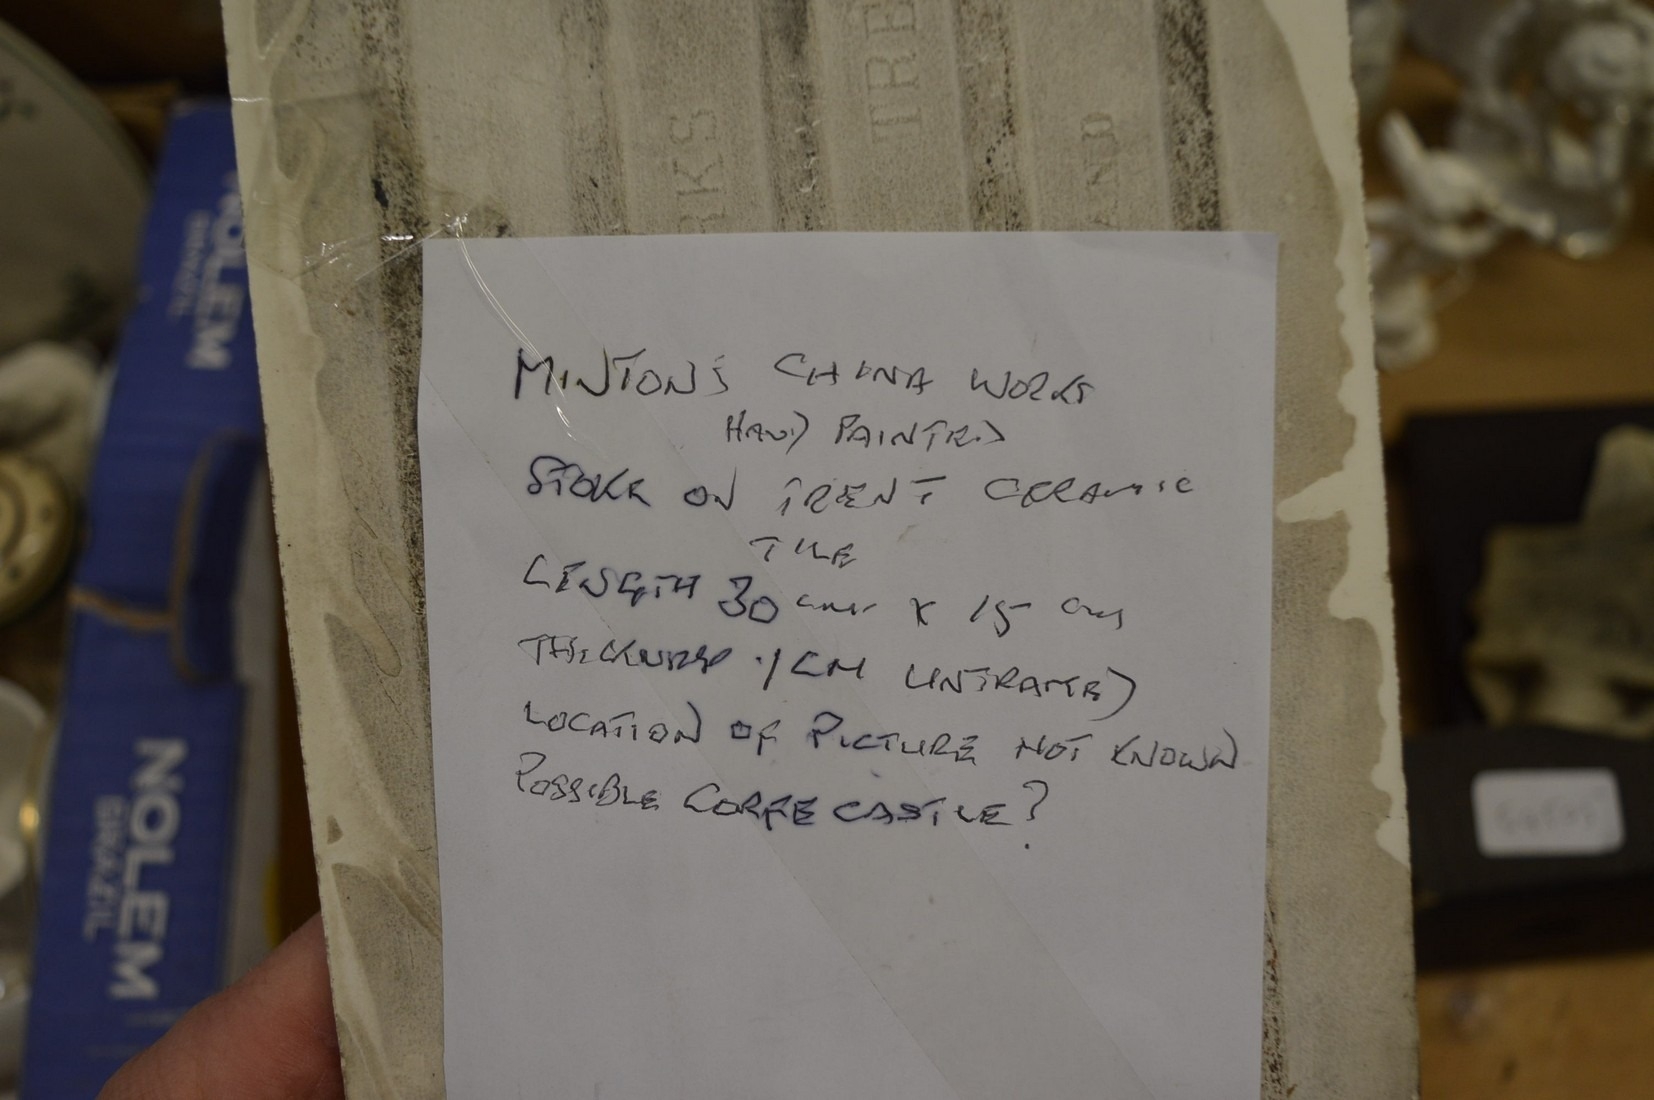 RKS
TRE
AND
MINTON'S CHINA WORKS
HAND PAINTED
STOKE ON TRENT CERAMIC
TILE
LENGTH 30 cms x 15 cms
THICKNESS .1 CM UNFRAMED
LOCATION OF PICTURE NOT KNOWN
POSSIBLE CORFE CASTLE?
NOLEM
BRAZIL
NOLEM
BRAZIL